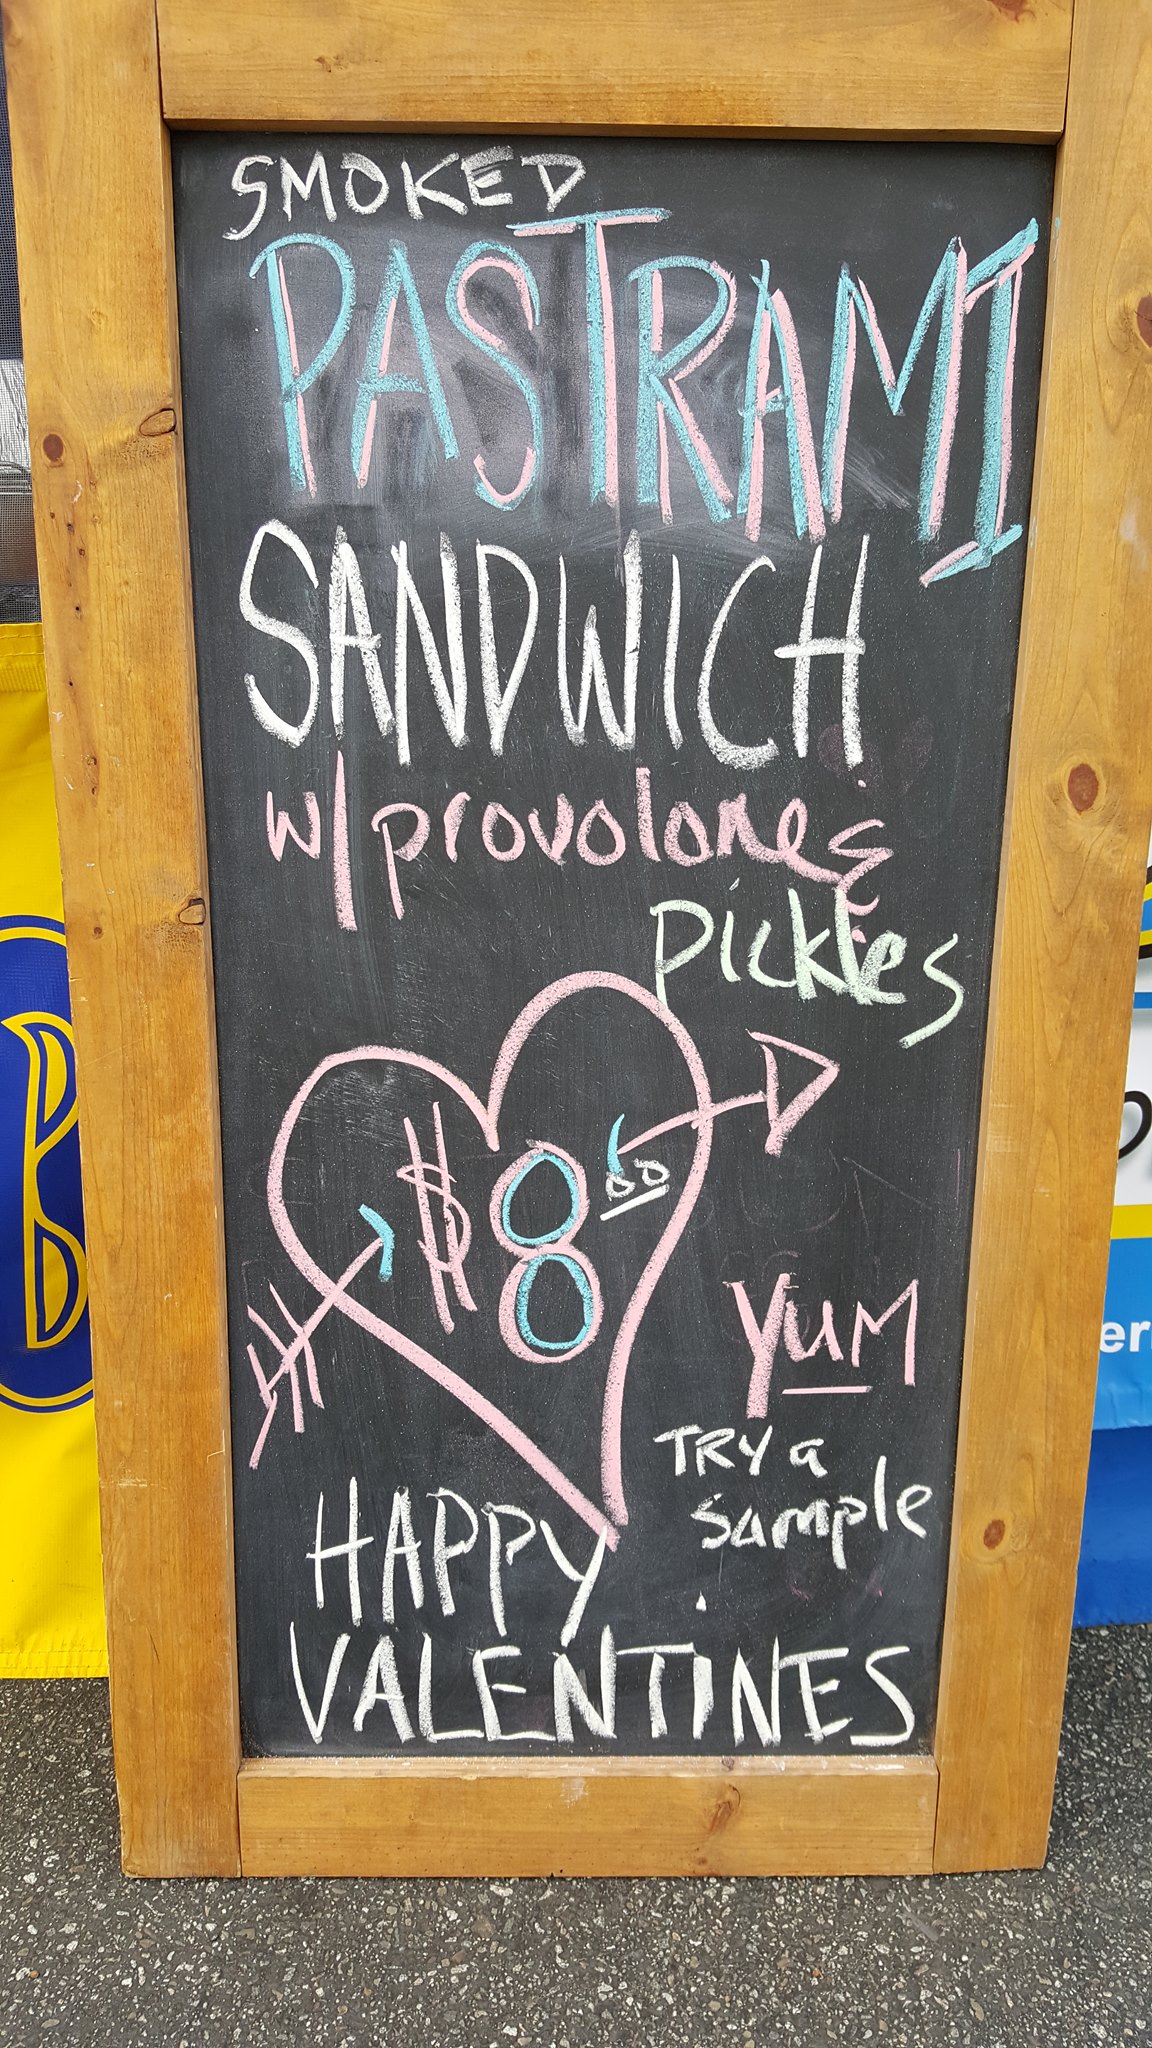 SMOKED
PASTRAMI
SANDWICH
w/provolone &
PICKles
$8.00
YUM
TRY a
sample
HAPPY
VALENTINES
er